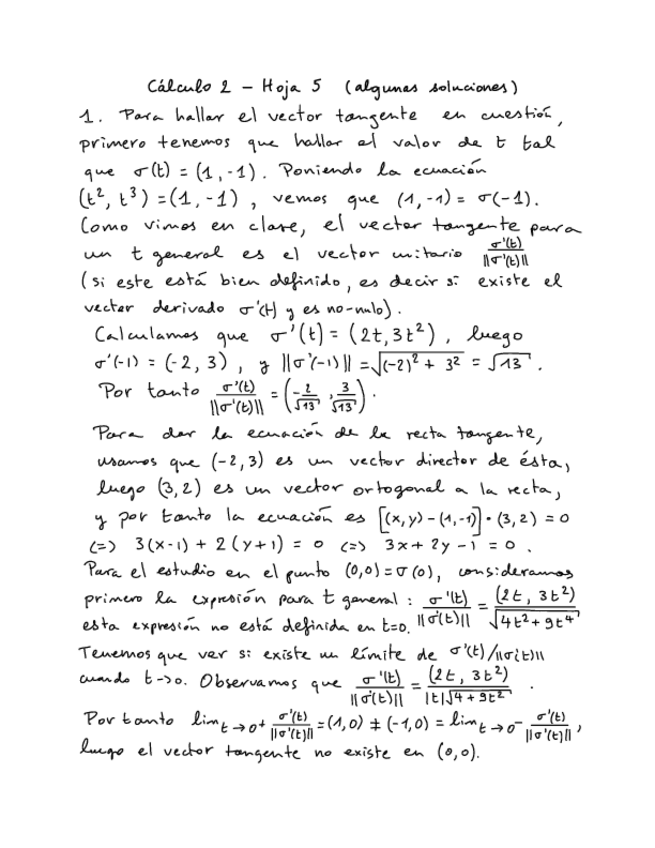 Cálculo 2 – Hoja 5 (algunas soluciones)
1. Para hallar el vector tangente en cuestión,
primero tenemos que hallar el valor de t tal
que σ(t) = (1,-1). Poniendo la ecuación
(t², t³) = (1,-1), vemos que (1,-1) = σ(-1).
Como vimos en clase, el vector tangente para
un t general es el vector unitario σ'(t)/||σ'(t)||
(si este está bien definido, es decir si existe el
vector derivado σ'(t) y es no-nulo).
Calculamos que σ'(t) = (2t, 3t²), luego
σ'(-1) = (-2, 3), y ||σ'(-1)|| = √((-2)² + 3²) = √13.
Por tanto σ'(t)/||σ'(t)|| = (-2/√13, 3/√13).
Para dar la ecuación de la recta tangente,
usamos que (-2,3) es un vector director de ésta,
luego (3,2) es un vector ortogonal a la recta,
y por tanto la ecuación es [(x,y) - (1,-1)]·(3,2) = 0
<=> 3(x-1) + 2(y+1) = 0 <=> 3x + 2y - 1 = 0.
Para el estudio en el punto (0,0) = σ(0), consideramos
primero la expresión para t general: σ'(t)/||σ'(t)|| = (2t, 3t²)/√(4t²+9t⁴)
esta expresión no está definida en t=0.
Tenemos que ver si existe un límite de σ'(t)/||σ'(t)||
cuando t→0. Observamos que σ'(t)/||σ'(t)|| = (2t, 3t²)/(|t|√(4+9t²)).
Por tanto lim t→0⁺ σ'(t)/||σ'(t)|| = (1,0) ≠ (-1,0) = lim t→0⁻ σ'(t)/||σ'(t)||,
luego el vector tangente no existe en (0,0).